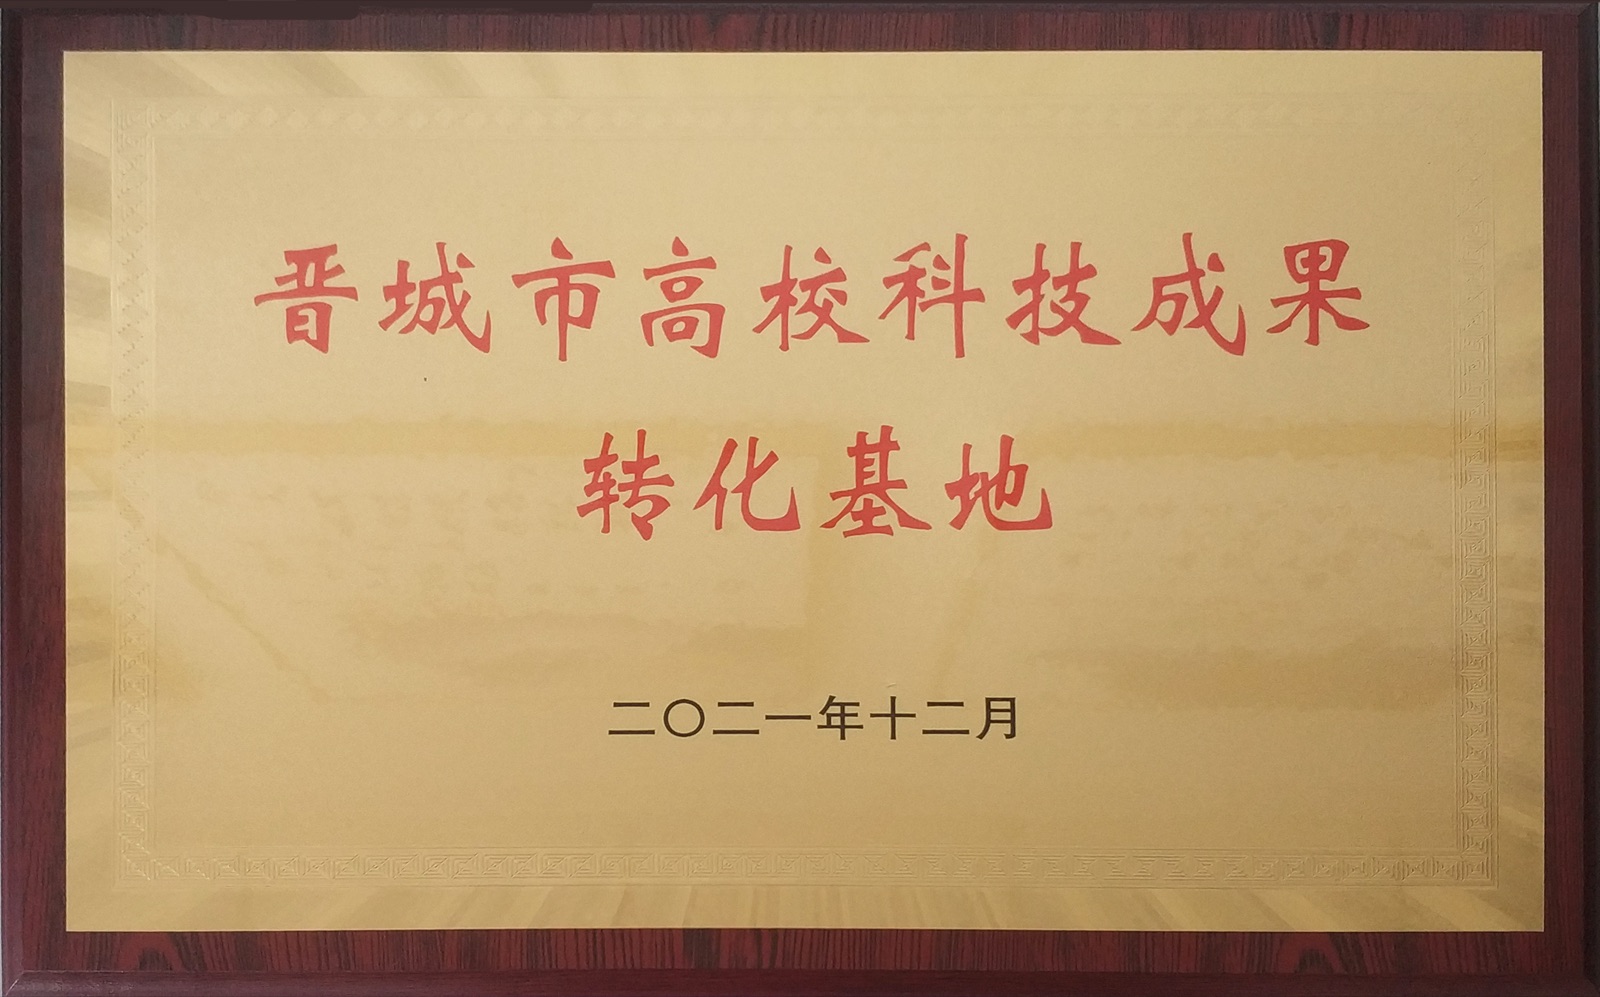 晋城市高校科技成果
转化基地
二〇二一年十二月